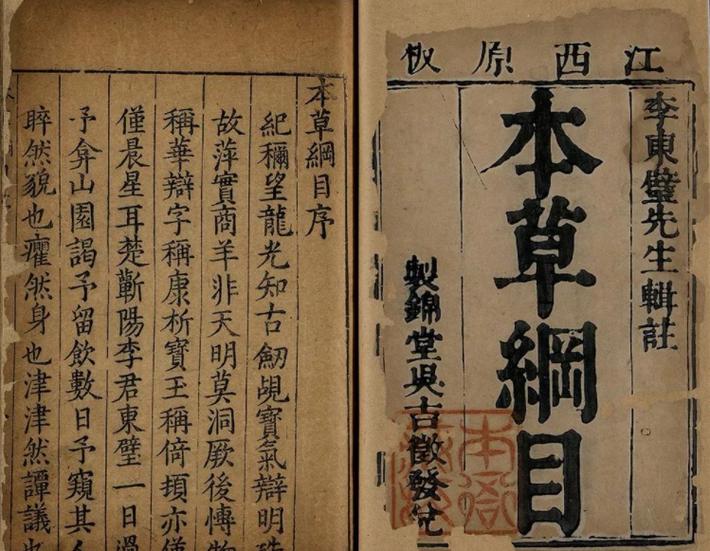 江西原板
李東璧先生輯註
本草綱目
製錦堂吳吉徵發兌
本草綱目序
紀稱望龍光知古劒覘寶氣辯明珠
故萍實商羊非天明莫洞厥後愽物
稱華辯字稱康析寶玉稱倚頓亦僅
僅晨星耳楚蘄陽李君東璧一日過
予弇山園謁予留飲數日予窺其人
睟然貌也癯然身也津津然譚議也